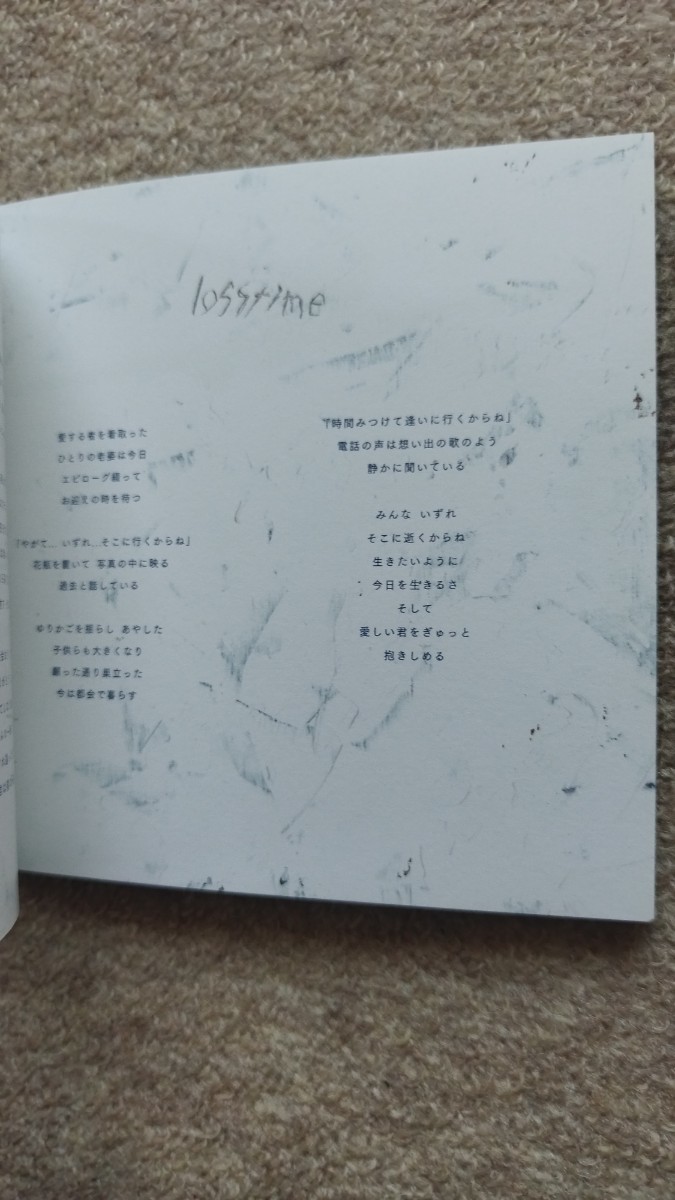 losstime
愛する者を看取った
ひとりの老婆は今日
エピローグ綴って
お迎えの時を待つ
「やがて... いずれ...そこに行くからね」
花瓶を置いて 写真の中に映る
過去と話している
ゆりかごを揺らし あやした
子供らも大きくなり
願った通り巣立った
今は都会で暮らす
「時間みつけて逢いに行くからね」
電話の声は想い出の歌のよう
静かに聞いている
みんな いずれ
そこに逝くからね
生きたいように
今日を生きるさ
そして
愛しい君をぎゅっと
抱きしめる